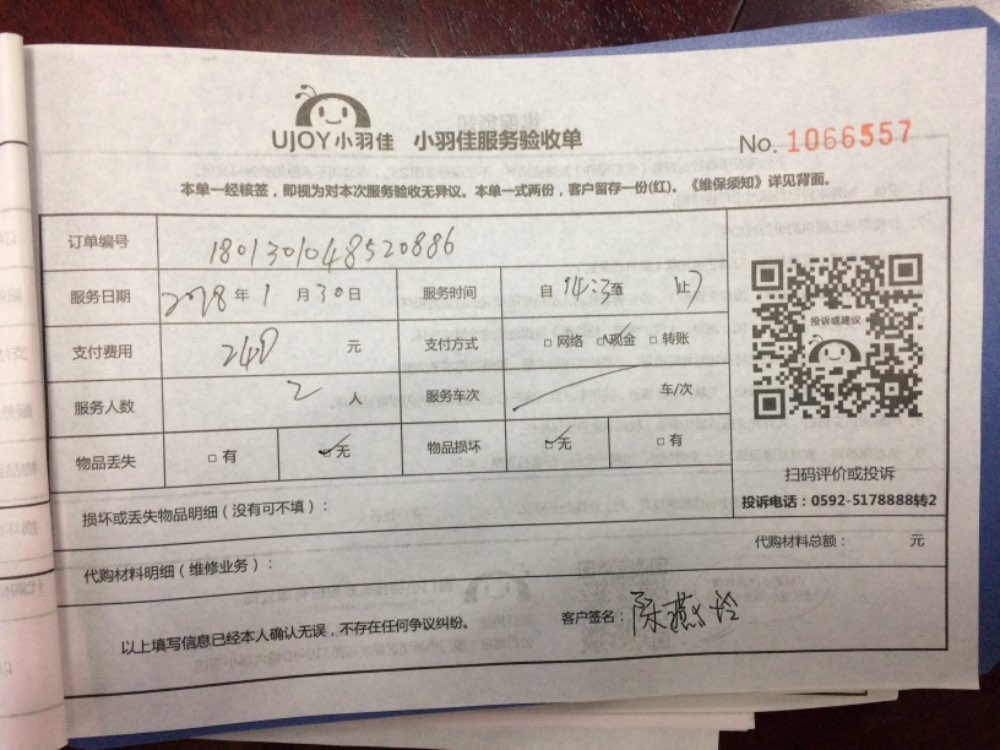 UJOY小羽佳 小羽佳服务验收单 No. 1066557
本单一经核签，即视为对本次服务验收无异议。本单一式两份，客户留存一份(红)。《维保须知》详见背面。
订单编号 1801301048520886
服务日期 2018年1月30日 服务时间 自14:3至17止
支付费用 240元 支付方式 □网络 ☑现金 □转账
服务人数 2人 服务车次 车/次
物品丢失 □有 ☑无 物品损坏 ☑无 □有
投诉或建议
扫码评价或投诉
投诉电话：0592-5178888转2
损坏或丢失物品明细（没有可不填）：
代购材料明细（维修业务）： 代购材料总额： 元
以上填写信息已经本人确认无误，不存在任何争议纠纷。 客户签名：陈燕玲